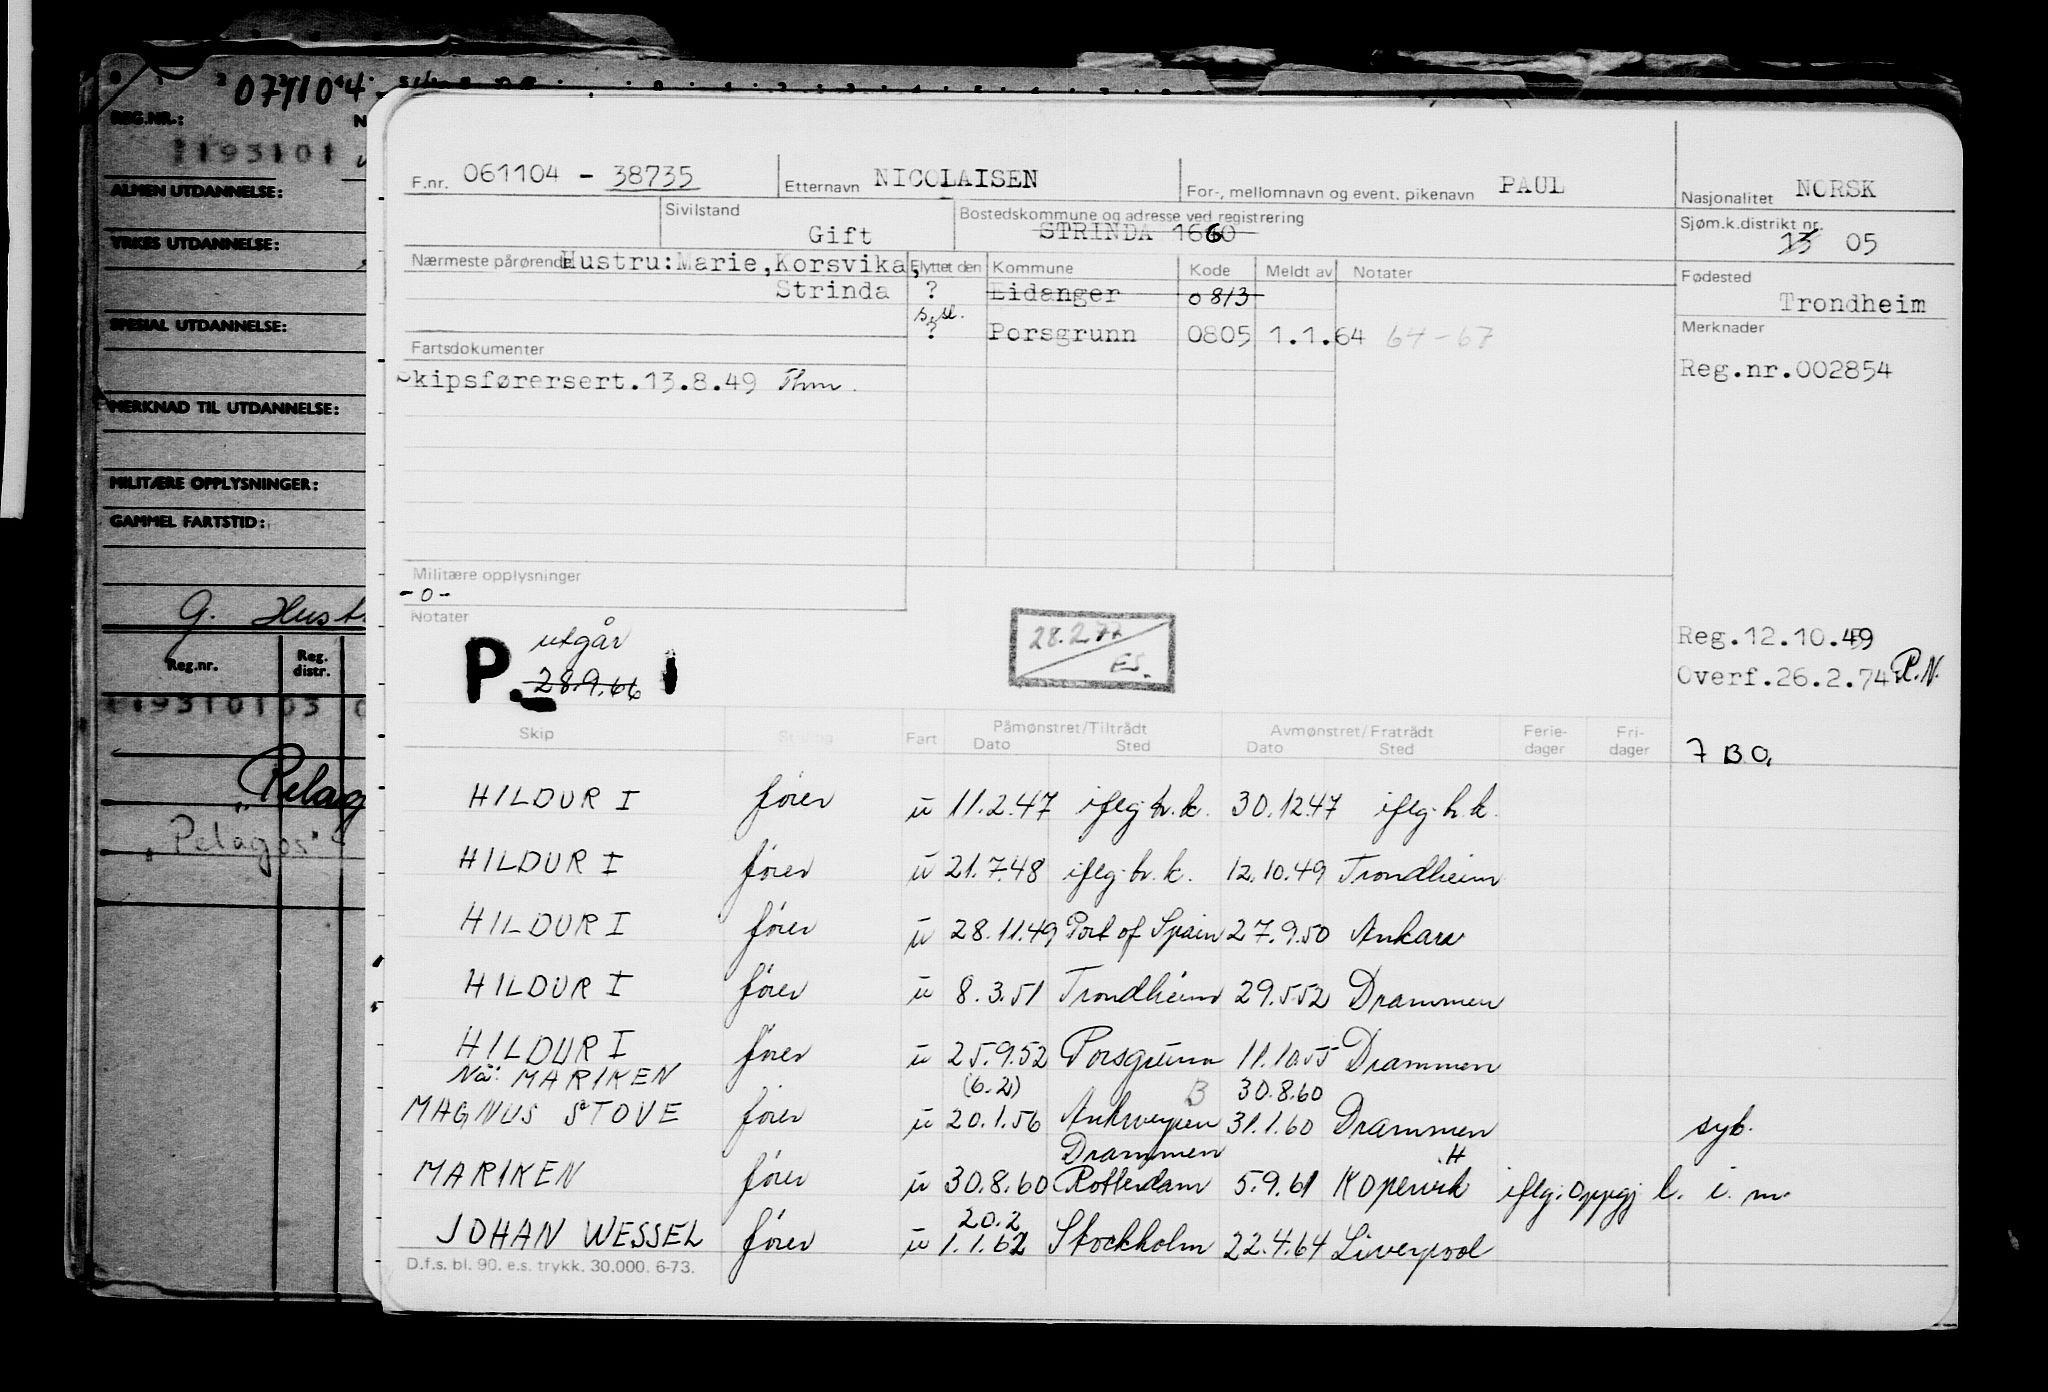 071104
REG.NR.:
1193101
ALMEN UTDANNELSE:
YRKES UTDANNELSE:
SPESIAL UTDANNELSE:
MERKNAD TIL UTDANNELSE:
MILITÆRE OPPLYSNINGER:
GAMMEL FARTSTID:
G. Hust
Reg.nr. Reg. distr.
119310103
"Pelag
"Pelagos"
F.nr. 061104 - 38735 Etternavn NICOLAISEN For-, mellomnavn og event. pikenavn PAUL Nasjonalitet NORSK
Sivilstand Gift Bostedskommune og adresse ved registrering STRINDA 1660 Sjøm.k.distrikt nr. 13 05
Nærmeste pårørende Hustru:Marie,Korsvika, Flyttet den Kommune Kode Meldt av Notater Fødested
Strinda ? Eidanger 0813 Trondheim
s.sl. ? Porsgrunn 0805 1.1.64 64-67 Merknader
Fartsdokumenter
Skipsførersert.13.8.49 Thm. Reg.nr.002854
Militære opplysninger
-0-
Notater
P. utgår 28.9.66
28.2.77 ES.
Reg.12.10.49
Overf.26.2.74 P.N.
Skip Stilling Fart Påmønstret/Tiltrådt Avmønstret/Fratrådt Ferie- Fri-
Dato Sted Dato Sted dager dager
7 B.O.
HILDUR I fører u 11.2.47 iflg.hr.k. 30.12.47 iflg.hr.k.
HILDUR I fører u 21.7.48 iflg.hr.k. 12.10.49 Trondheim
HILDUR I fører u 28.11.49 Port of Spain 27.9.50 Ankara
HILDUR I fører u 8.3.51 Trondheim 29.5.52 Drammen
HILDUR I fører u 25.9.52 Porsgrunn 11.10.55 Drammen
Nå: MARIKEN (6.2) B 30.8.60
MAGNUS STOVE fører u 20.1.56 Antwerpen 31.1.60 Drammen syk.
Drammen H
MARIKEN fører u 30.8.60 Rotterdam 5.9.61 Kopervik iflg. oppgj l. i. m.
20.2
JOHAN WESSEL fører u 1.1.62 Stockholm 22.4.64 Liverpool
D.f.s. bl. 90. e.s. trykk. 30.000. 6-73.